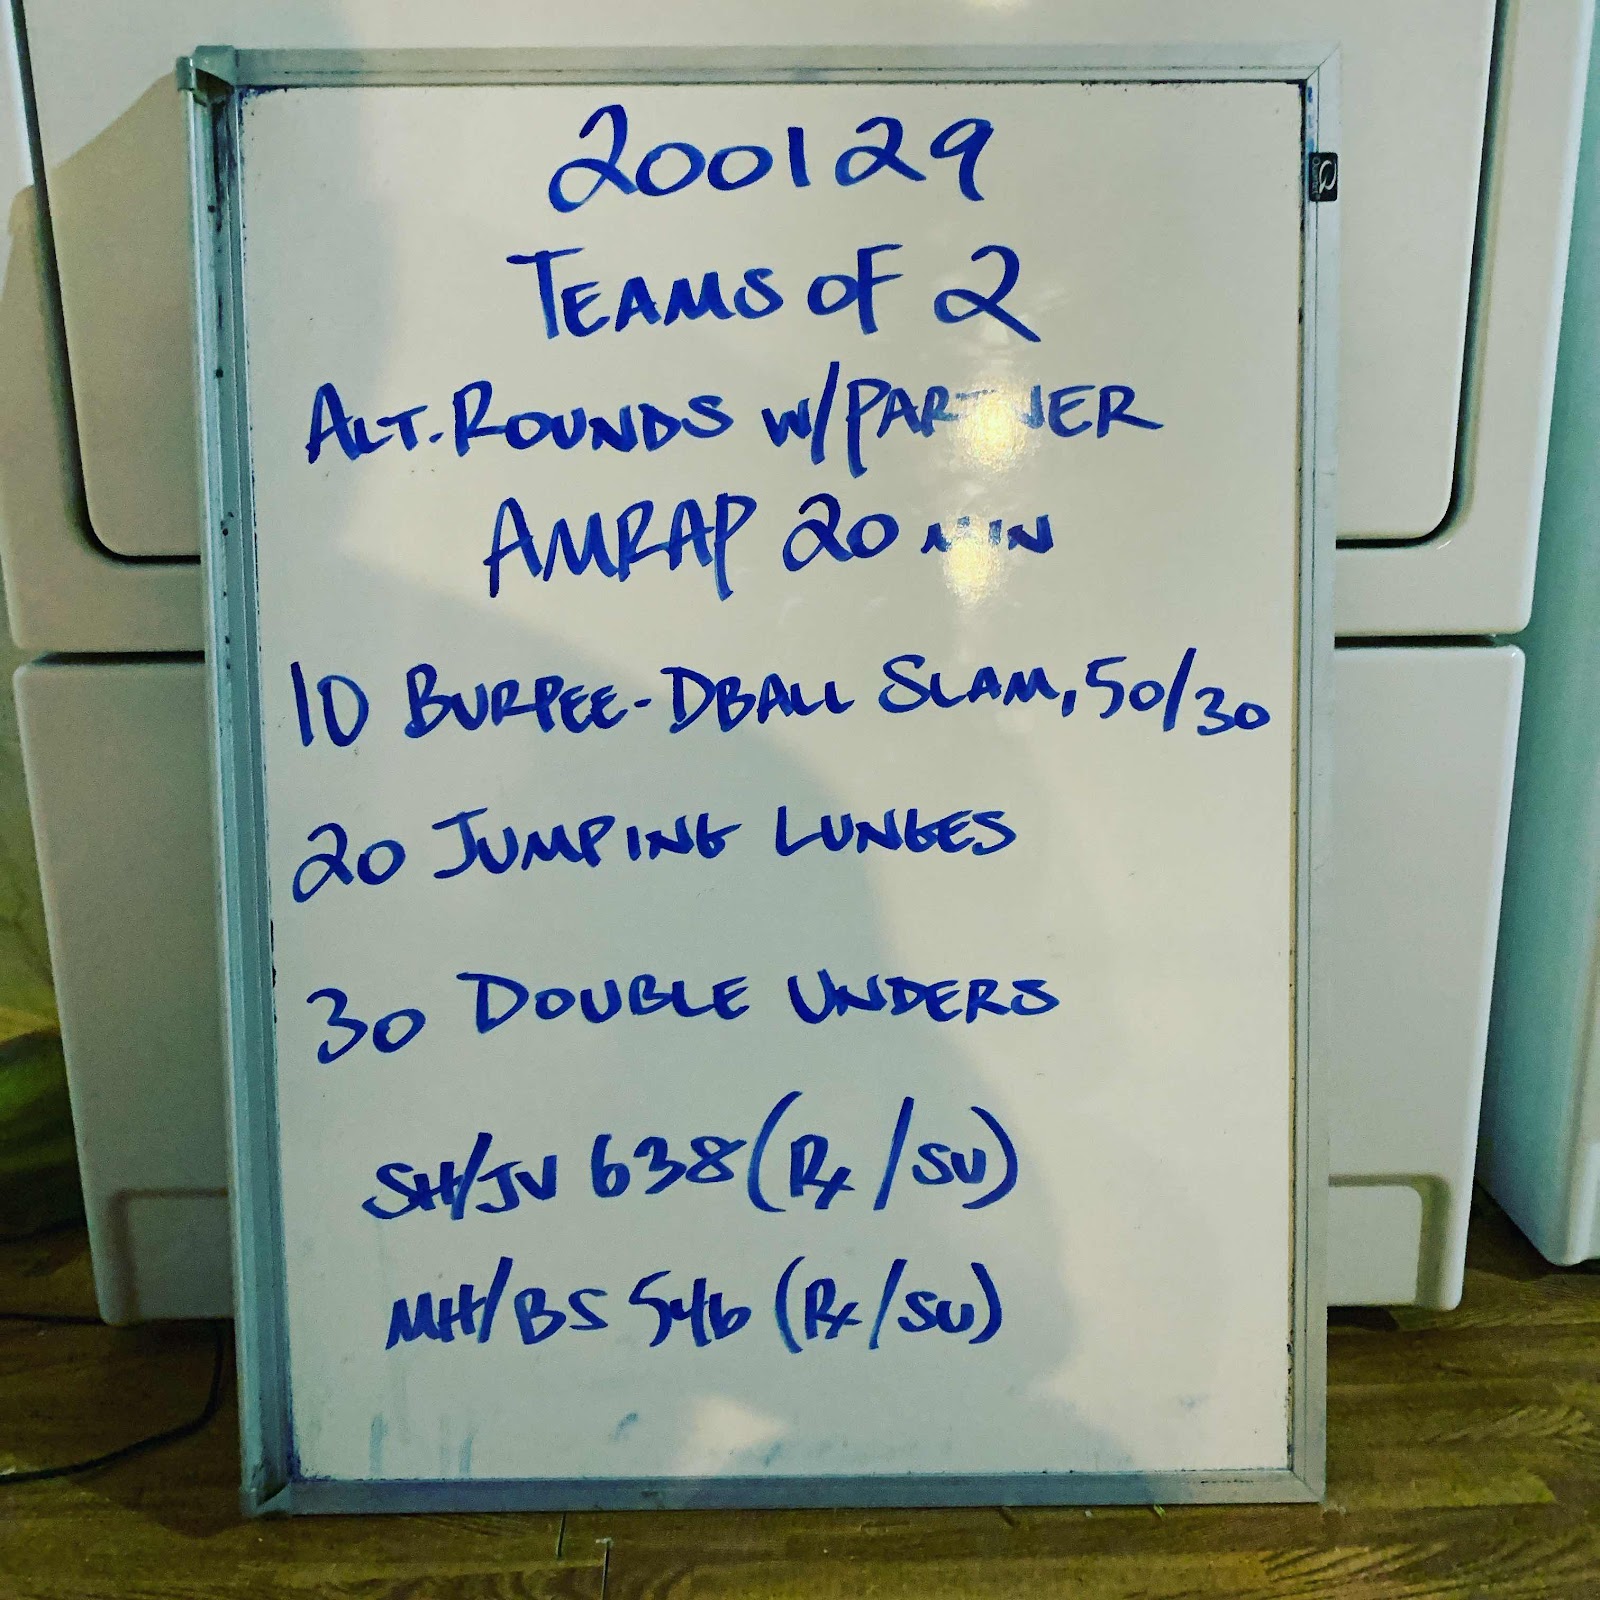 200129
TEAMS OF 2
ALT. ROUNDS W/PARTNER
AMRAP 20 MIN
10 BURPEE-DBALL SLAM, 50/30
20 JUMPING LUNGES
30 DOUBLE UNDERS
SH/JV 638 (Rx/SU)
MH/BS 546 (Rx/SU)